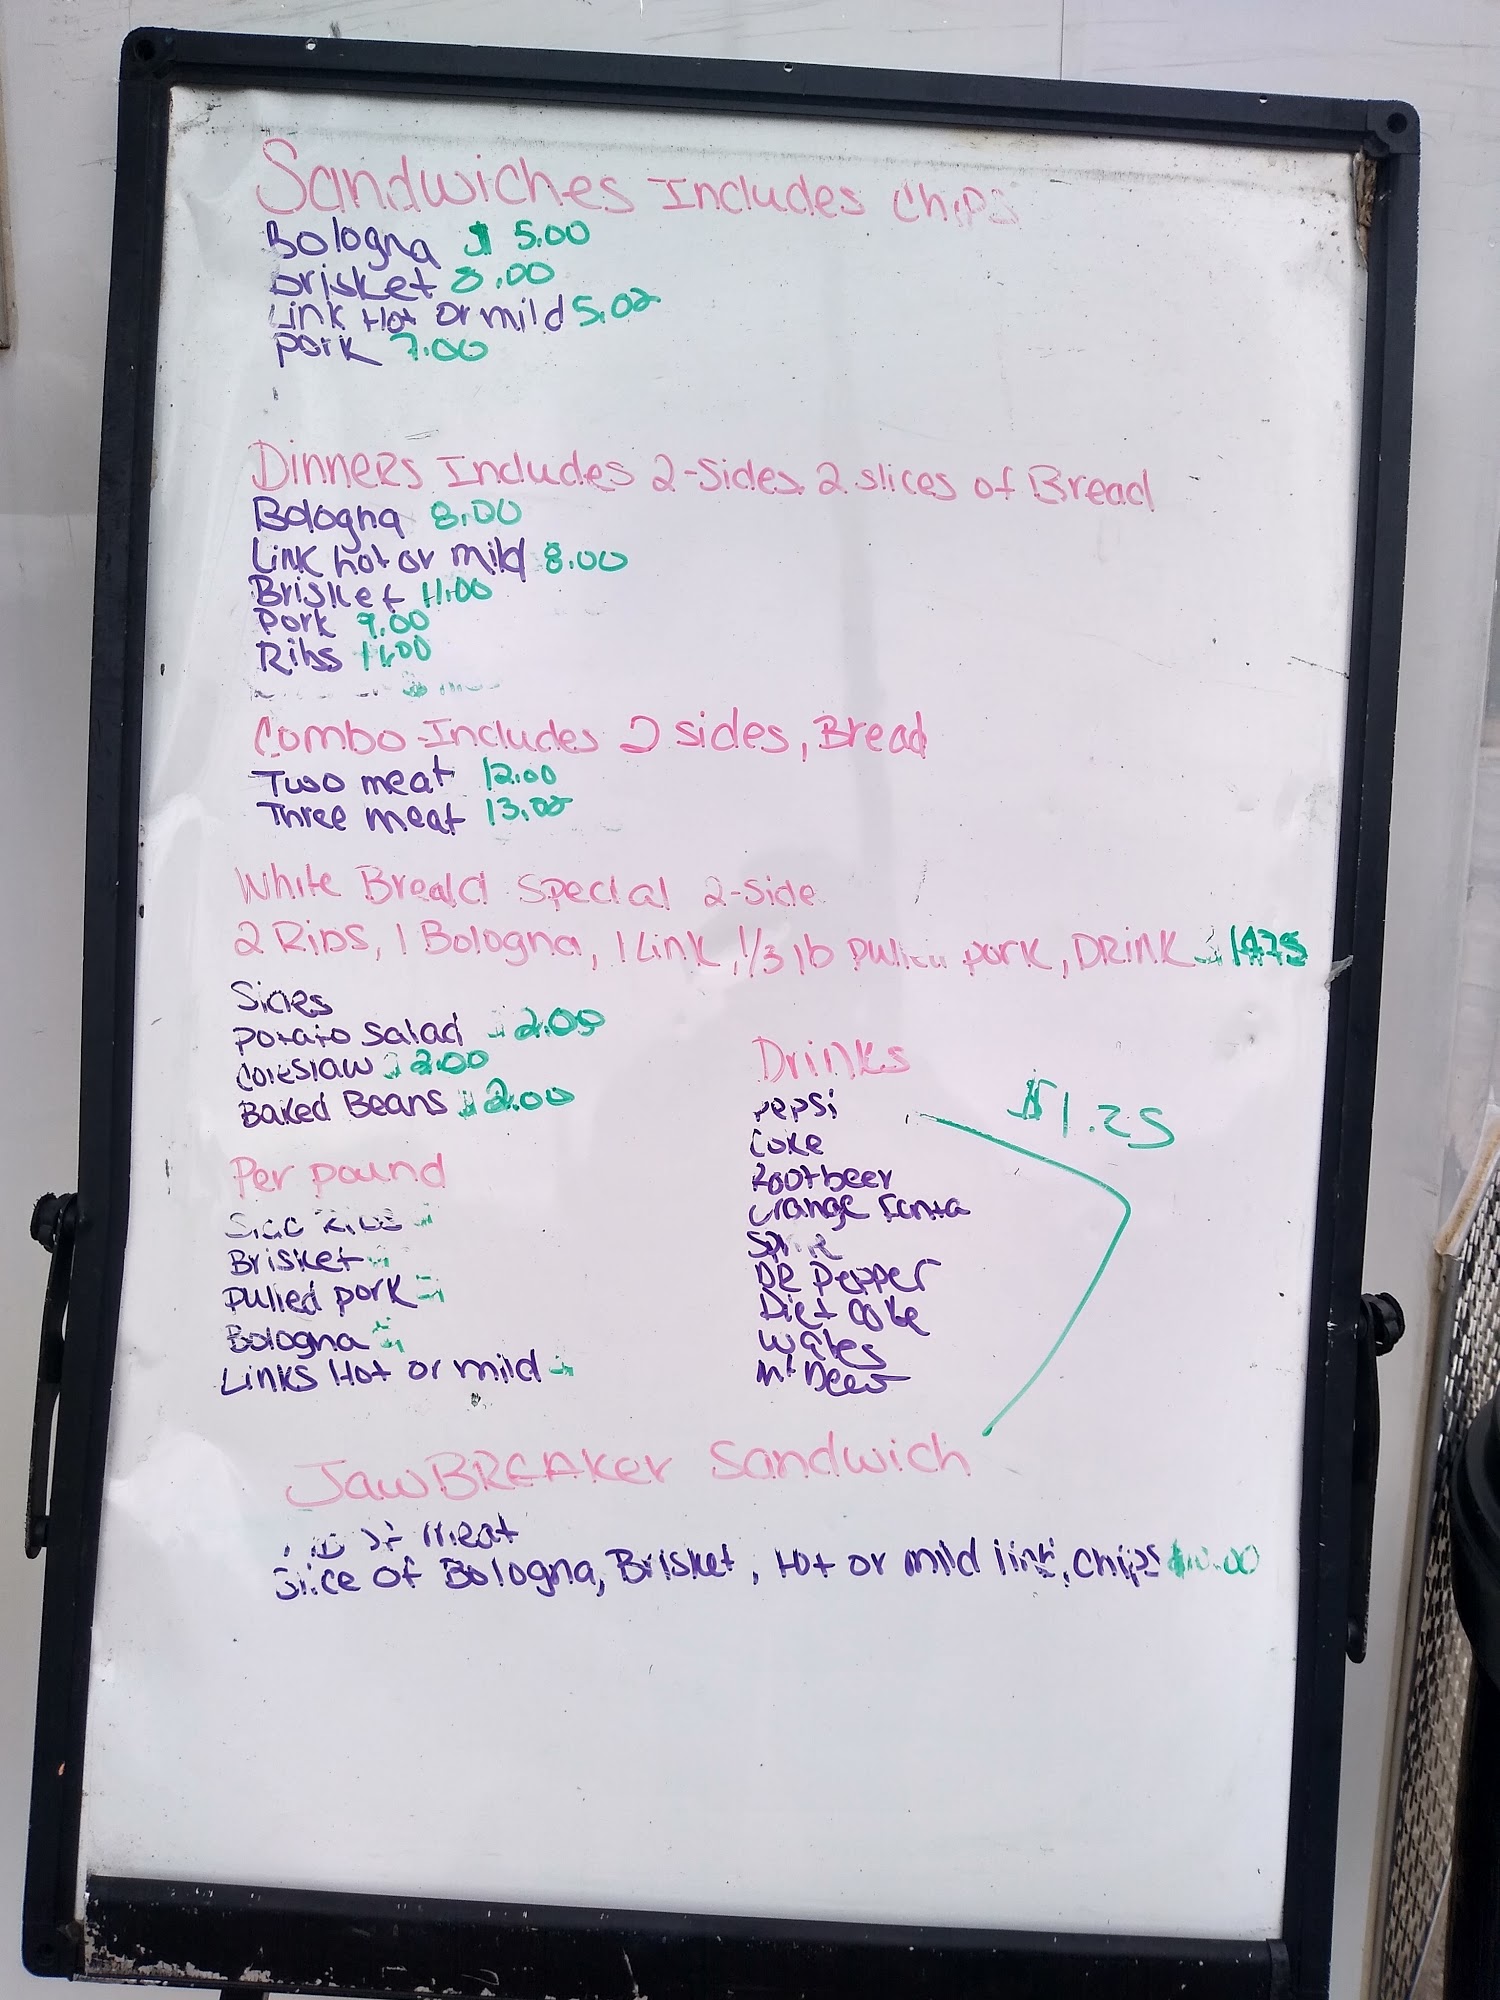 Sandwiches Includes Chips
Bologna $ 5.00
Brisket 8.00
Link Hot or mild 5.00
Pork 7.00
Dinners Includes 2-Sides 2 slices of Bread
Bologna 8.00
Link hot or mild 8.00
Brisket 11.00
Pork 9.00
Ribs 11.00
Combo-Includes 2 sides, Bread
Two meat 12.00
Three meat 13.00
White Bread Special 2-Side
2 Ribs, 1 Bologna, 1 Link, 1/3 lb pulled pork, DRINK 14.75
Sides
Potato Salad 2.00
Coleslaw 2.00
Baked Beans 2.00
Drinks
Pepsi
$1.25
Coke
Rootbeer
Orange Fanta
Sprite
DR Pepper
Diet Coke
Mt Dew
Per pound
Ribs
Brisket
Pulled pork
Bologna
Links Hot or mild
JawBREAKer Sandwich
of meat
Slice of Bologna, Brisket, Hot or mild link, chips